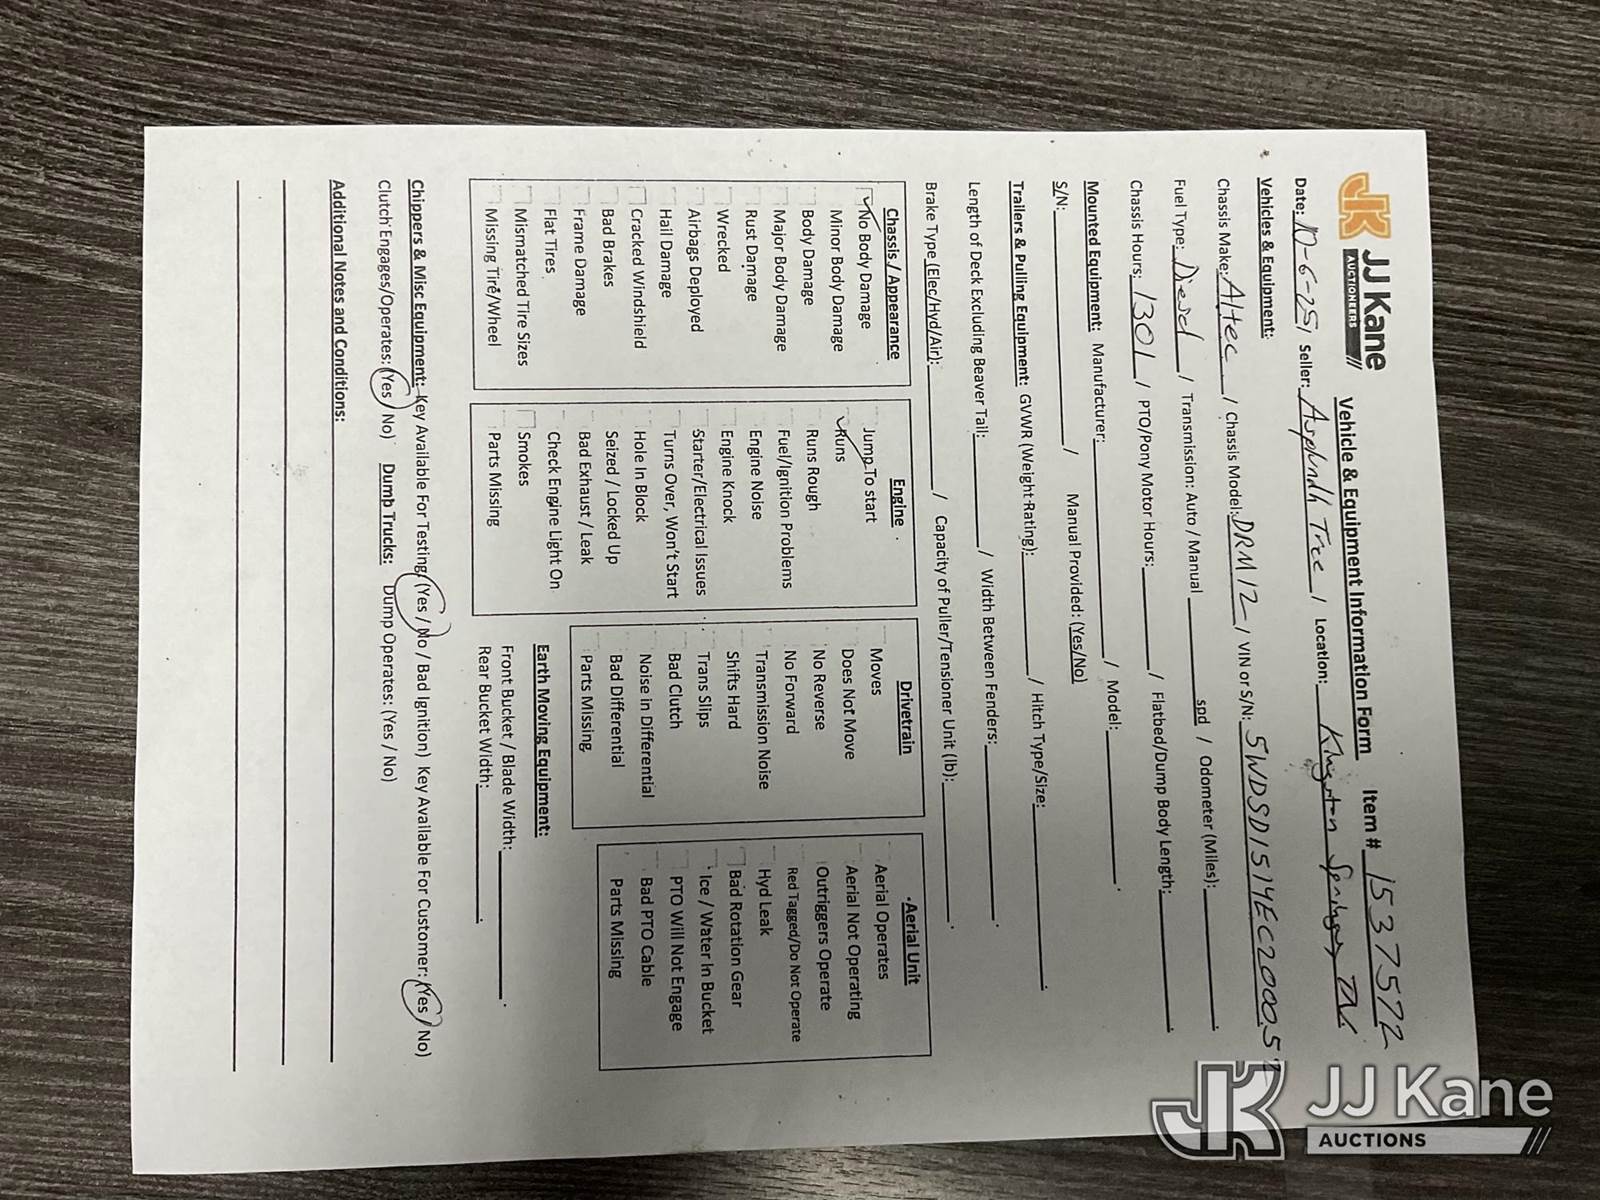 JJ Kane
AUCTIONEERS
Vehicle & Equipment Information Form Item # 1537572
Date: 10-6-25 Seller: Asplundh Tree / Location: Kingston Springs TN.
Vehicles & Equipment:
Chassis Make: Altec / Chassis Model: DRM12 / VIN or S/N: 5WDSD1514EC200057
Fuel Type: Diesel / Transmission: Auto / Manual ______ spd / Odometer (Miles): ______.
Chassis Hours: 1301 / PTO/Pony Motor Hours: ______ / Flatbed/Dump Body Length: ______.
Mounted Equipment: Manufacturer: ______ / Model: ______.
S/N: ______ / Manual Provided: (Yes/No)
Trailers & Pulling Equipment: GVWR (Weight Rating): ______ / Hitch Type/Size: ______.
Length of Deck Excluding Beaver Tail: ______ / Width Between Fenders: ______.
Brake Type (Elec/Hyd/Air): ______ / Capacity of Puller/Tensioner Unit (lb): ______.
Chassis / Appearance
No Body Damage
Minor Body Damage
Body Damage
Major Body Damage
Rust Damage
Wrecked
Airbags Deployed
Hail Damage
Cracked Windshield
Bad Brakes
Frame Damage
Flat Tires
Mismatched Tire Sizes
Missing Tire/Wheel
Engine
Jump To start
Runs
Runs Rough
Fuel/Ignition Problems
Engine Noise
Engine Knock
Starter/Electrical Issues
Turns Over, Won't Start
Hole In Block
Seized / Locked Up
Bad Exhaust / Leak
Check Engine Light On
Smokes
Parts Missing
Drivetrain
Moves
Does Not Move
No Reverse
No Forward
Transmission Noise
Shifts Hard
Trans Slips
Bad Clutch
Noise in Differential
Bad Differential
Parts Missing
Aerial Unit
Aerial Operates
Aerial Not Operating
Outriggers Operate
Red Tagged/Do Not Operate
Hyd Leak
Bad Rotation Gear
Ice / Water In Bucket
PTO Will Not Engage
Bad PTO Cable
Parts Missing
Earth Moving Equipment:
Front Bucket / Blade Width: ______.
Rear Bucket Width: ______.
Chippers & Misc Equipment: Key Available For Testing: (Yes / No / Bad Ignition) Key Available For Customer: (Yes / No)
Clutch Engages/Operates: (Yes / No) Dump Trucks: Dump Operates: (Yes / No)
Additional Notes and Conditions:
JJ Kane
AUCTIONS